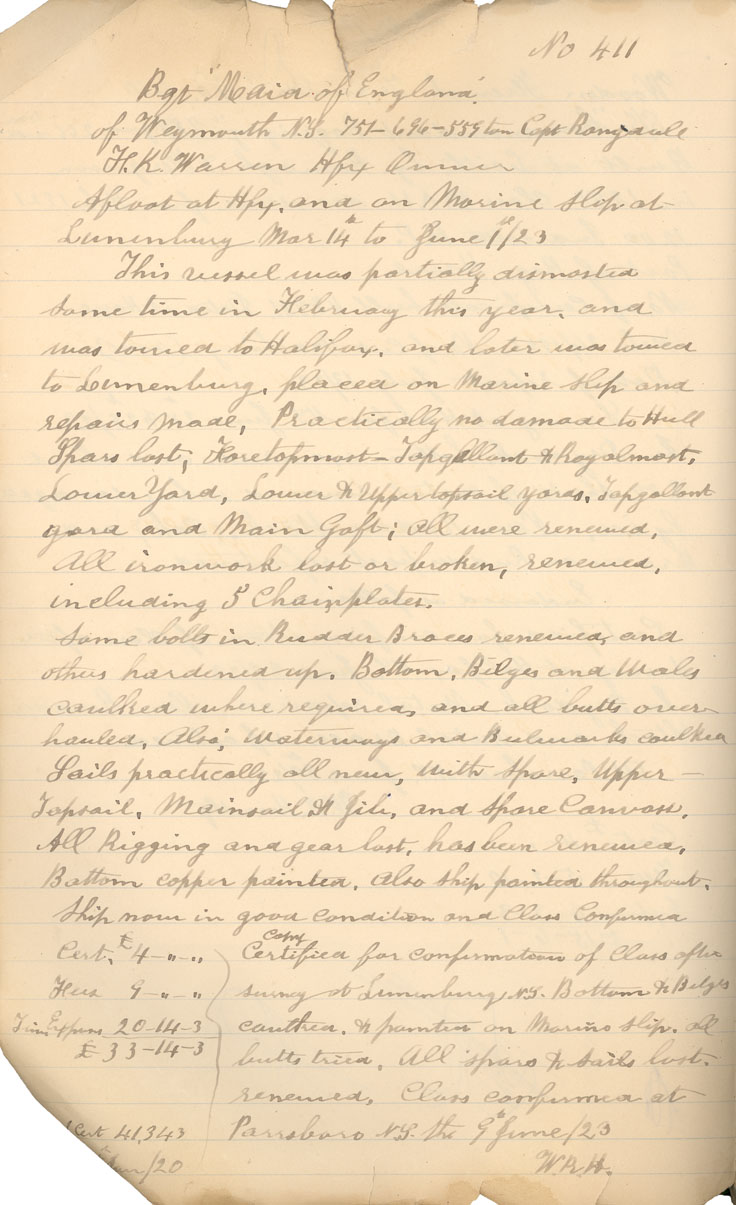 No 411
Bgt "Maid of England"
of Weymouth N.S. 751-696-559 ton Capt
H.K. Warren Hfx Owner
Afloat at Hfx, and on Marine Slip at
Lunenburg Mar 14th to June 1st/23
This vessel was partially dismasted
some time in February this year, and
was towed to Halifax, and later was towed
to Lunenburg, placed on Marine Slip and
repairs made, Practically no damade to Hull
Spars lost, Foretopmost - Topgallant & Royalmost,
Lower Yard, Lower & Upper topsail yards, Topgallant
yard and Main Gaft; all were renewed,
All ironwork lost or broken, renewed,
including 5 Chainplates.
Some bolts in Rudder Braces renewed, and
others hardened up. Bottom, Bilges and Wales
caulked where required, and all butts over-
hauled, Also, Waterways and Bulwarks caulked
Sails practically all new, with spare, Upper-
Topsail, Mainsail & Jib, and Spare Canvass,
All Rigging and gear lost, has been renewed,
Bottom copper painted, Also Ship painted throughout.
Ship now in good condition and Class Confirmed
Cert. £4-"-"
Fees 9-"-"
Expens 20-14-3
£33-14-3
Copy
Certified for confirmation of Class after
survey at Lunenburg N.S. Bottom & Bilges
caulked, & painted on Marine Slip, all
butts tried, All spars & sails lost,
renewed, Class confirmed at
Parrsboro N.S. the 9th June/23
Cert 41,343
/20
W.R.H.